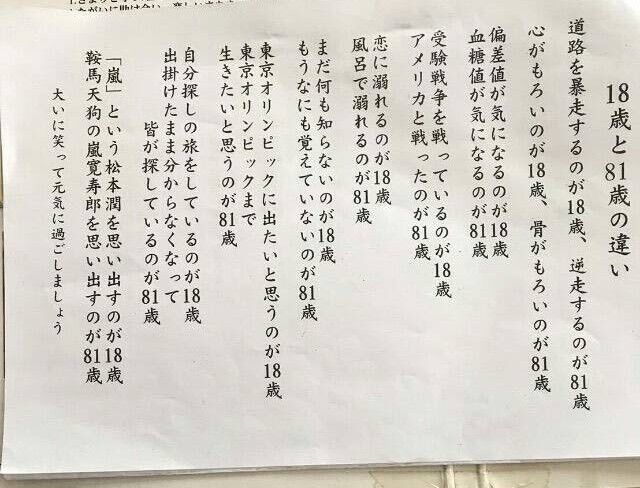 18歳と81歳の違い
道路を暴走するのが18歳、逆走するのが81歳
心がもろいのが18歳、骨がもろいのが81歳
偏差値が気になるのが18歳
血糖値が気になるのが81歳
受験戦争を戦っているのが18歳
アメリカと戦ったのが81歳
恋に溺れるのが18歳
風呂で溺れるのが81歳
まだ何も知らないのが18歳
もうなにも覚えていないのが81歳
東京オリンピックに出たいと思うのが18歳
東京オリンピックまで
生きたいと思うのが81歳
自分探しの旅をしているのが18歳
出掛けたまま分からなくなって
皆が探しているのが81歳
「嵐」という松本潤を思い出すのが18歳
鞍馬天狗の嵐寛寿郎を思い出すのが81歳
大いに笑って元気に過ごしましょう